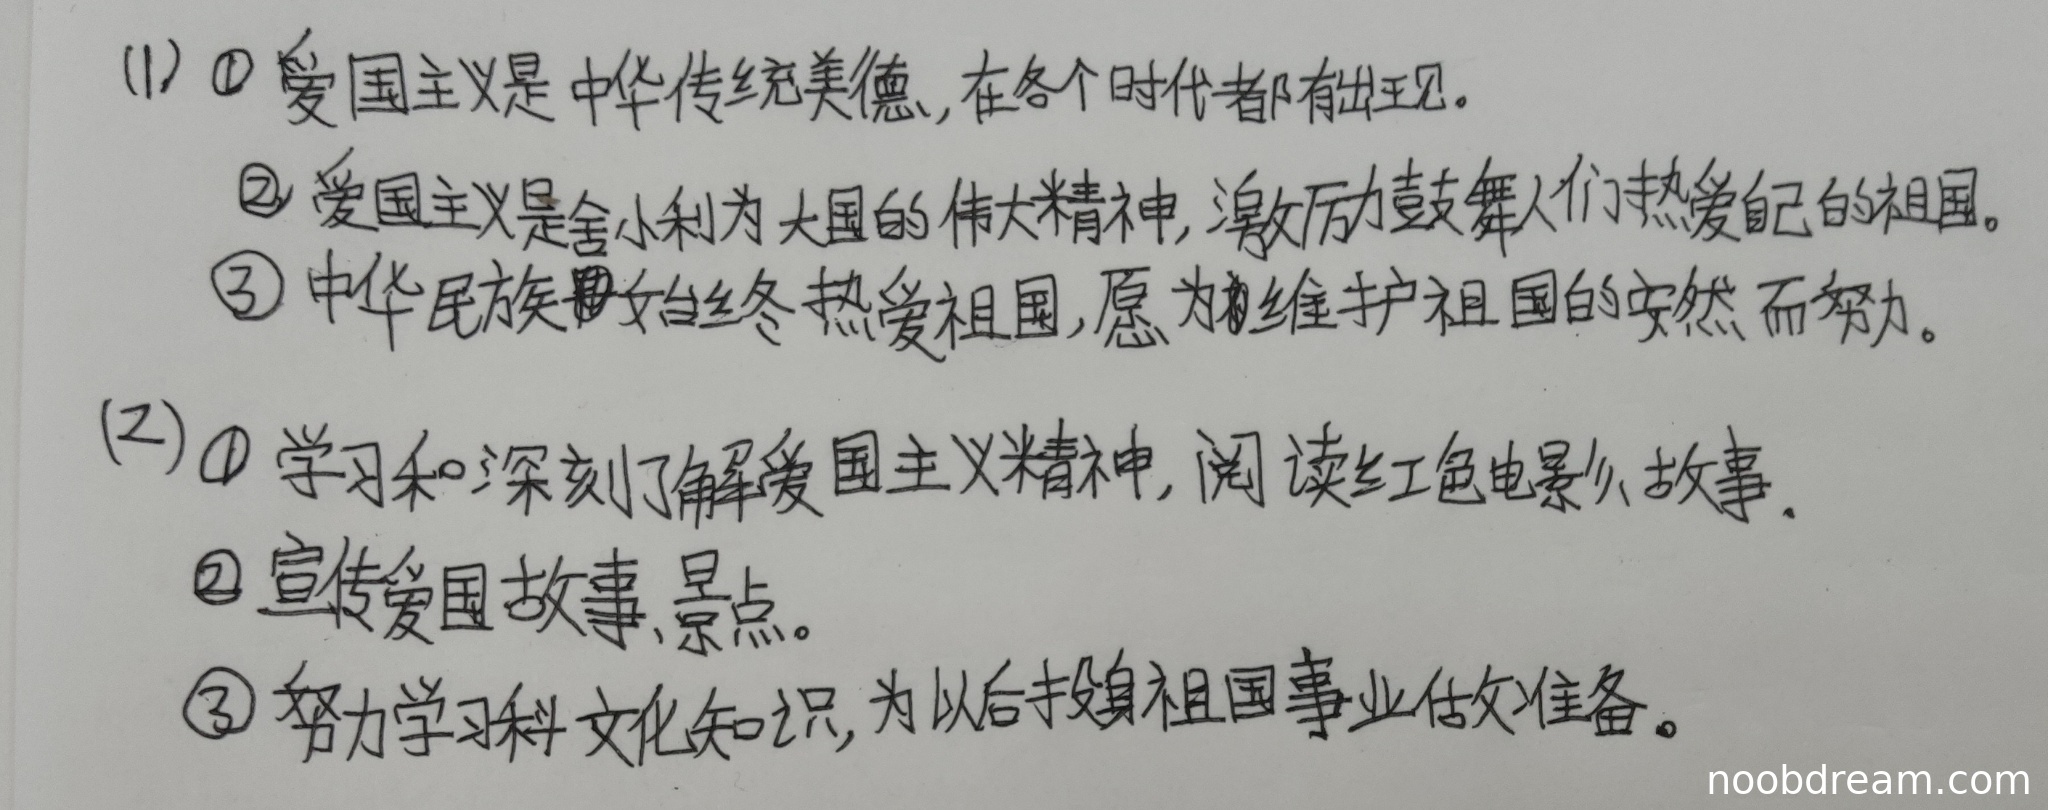 (1) ① 爱国主义是中华传统美德,在各个时代都有出现。
② 爱国主义是舍小利为大国的伟大精神,激厉力鼓舞人们热爱自己的祖国。
③ 中华民族始终热爱祖国,愿为维护祖国的安然而努力。
(2) ① 学习和深刻了解爱国主义精神,阅读红色电影、故事.
② 宣传爱国故事、景点。
③ 努力学习科文化知识,为以后投身祖国事业做准备。
noobdream.com